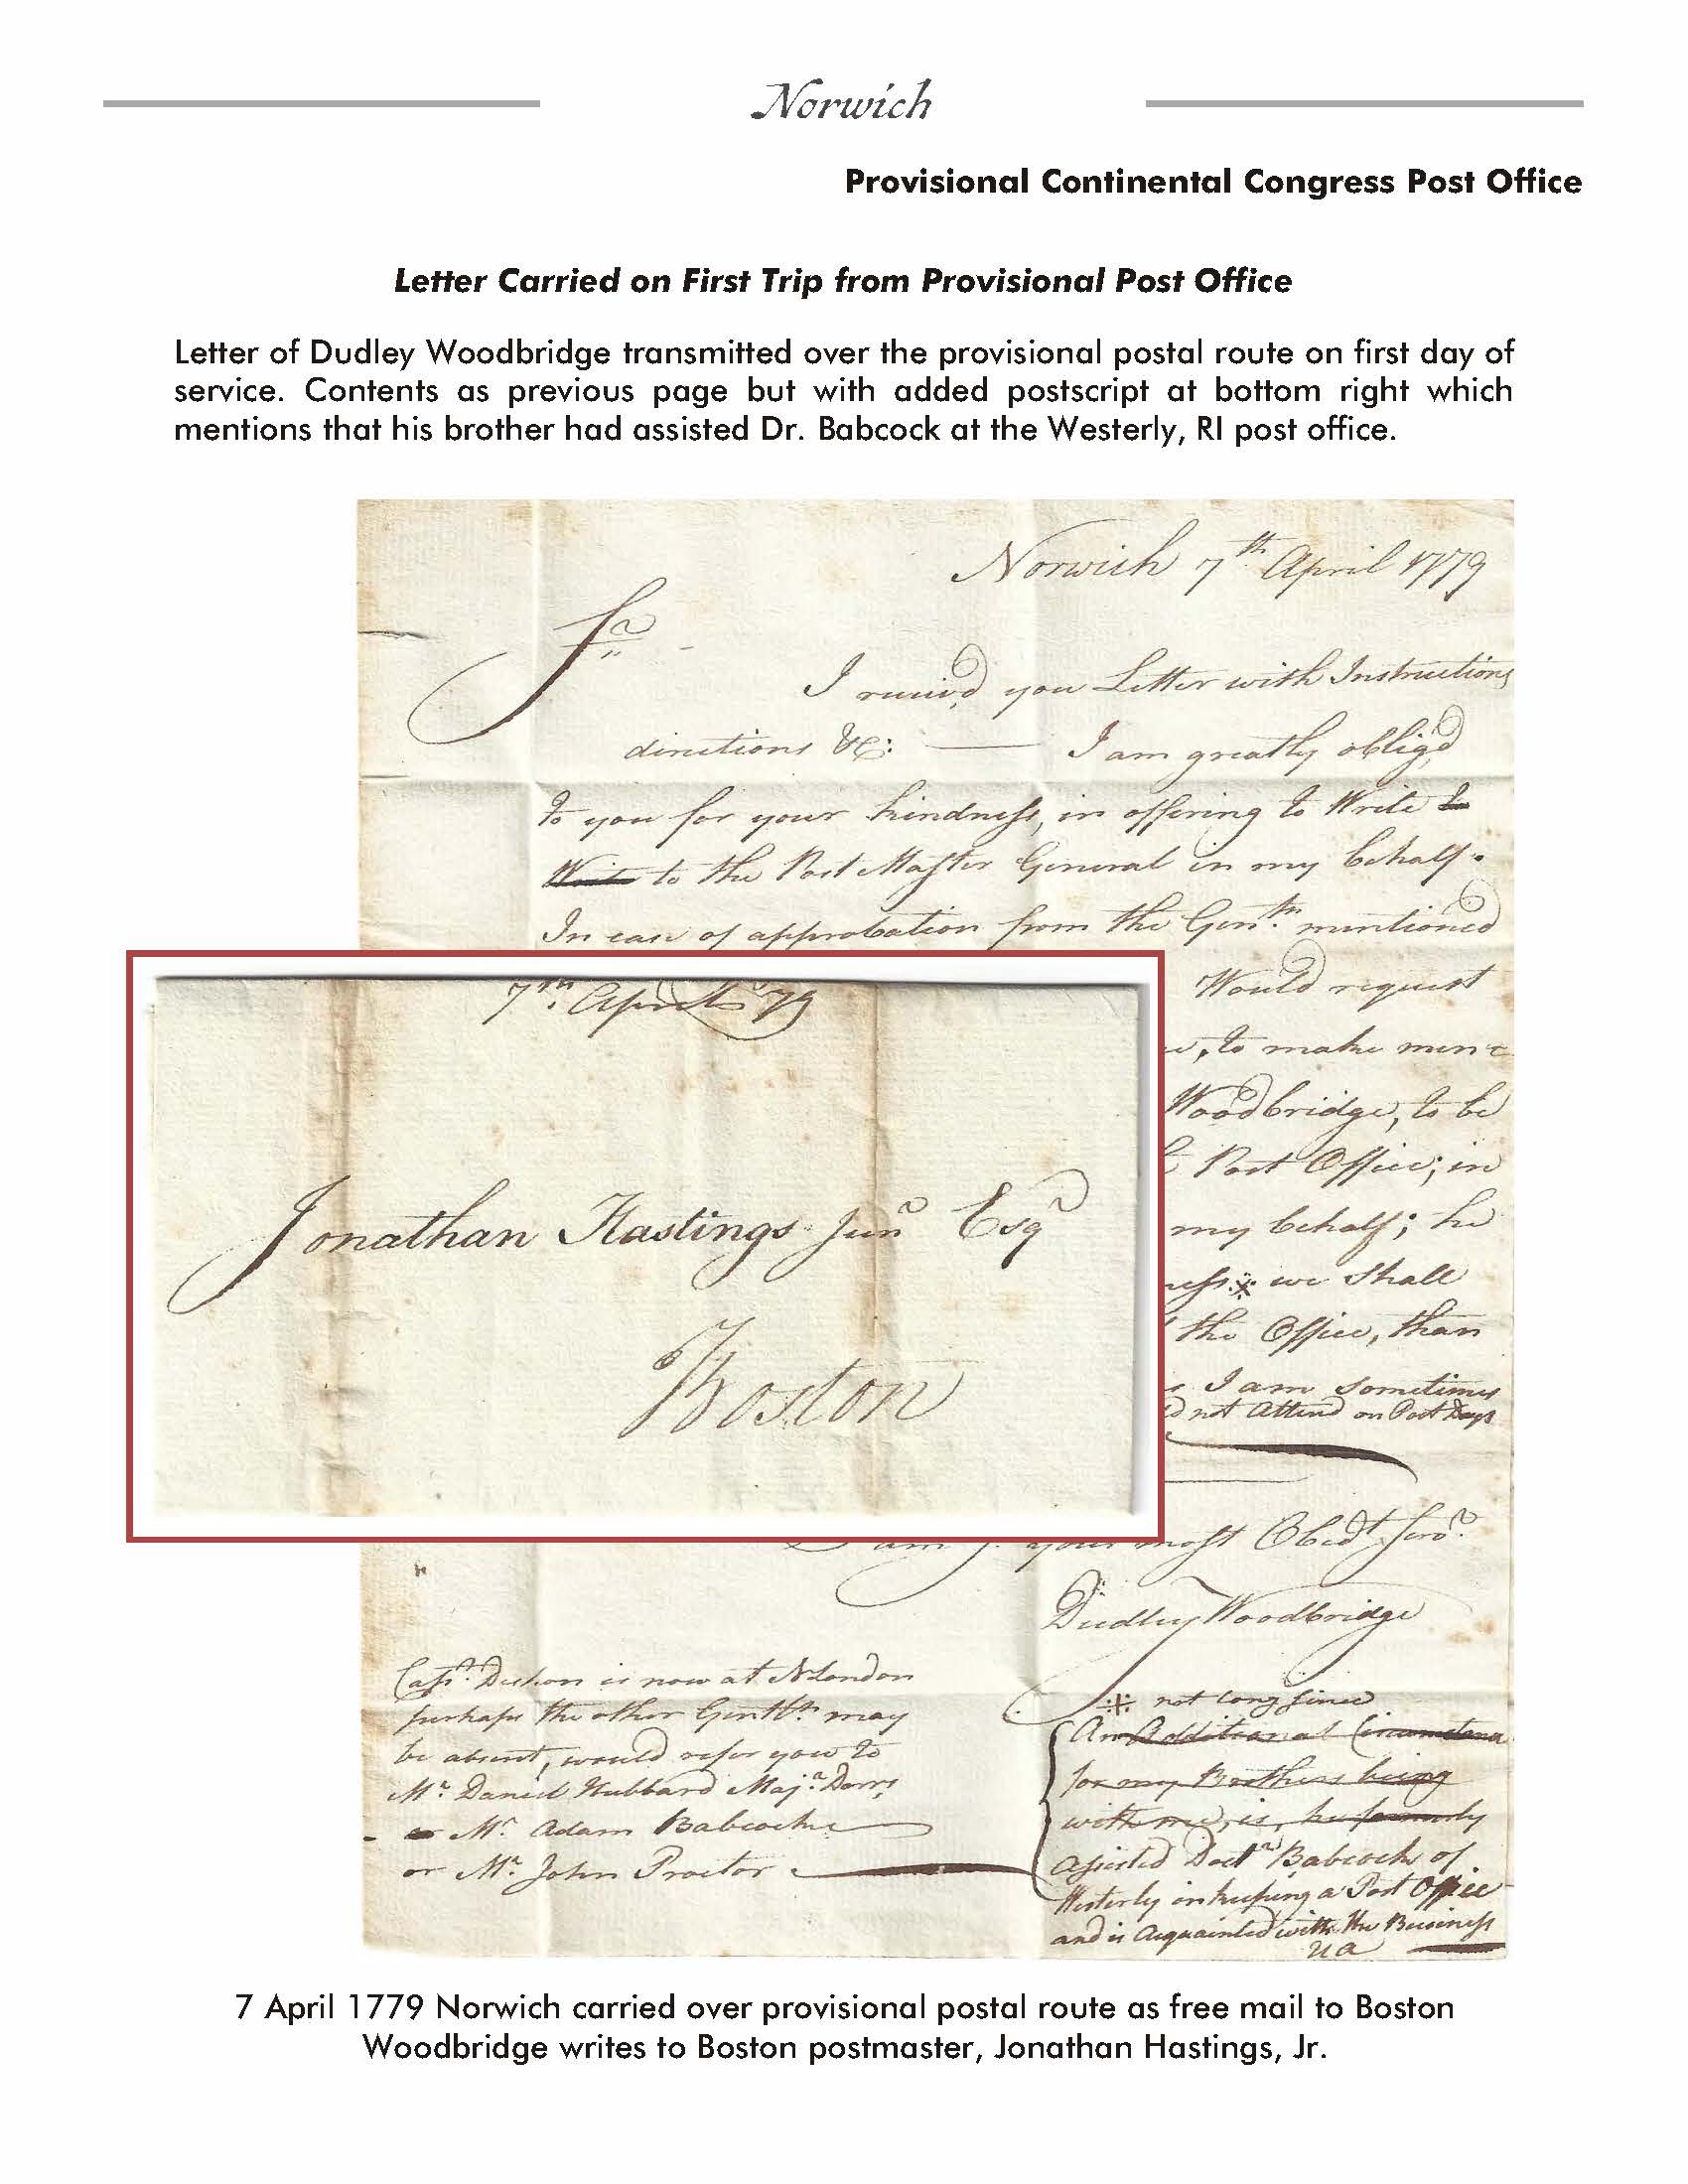 Norwich
Provisional Continental Congress Post Office
Letter Carried on First Trip from Provisional Post Office
Letter of Dudley Woodbridge transmitted over the provisional postal route on first day of
service. Contents as previous page but with added postscript at bottom right which
mentions that his brother had assisted Dr. Babcock at the Westerly, RI post office.
Norwich 7th April 1779
Sr
I receiv'd you Letter with Instructions
directions &c: I am greatly oblig'd
to you for your kindness, in offering to Write to
Write to the Post Master General in my behalf.
In case of approbation from the Gentn. mentioned
Would request
, to make men
Woodbridge, to be
Post Office; in
my behalf; he
we Shall
the Office, than
I am Sometimes
not Attend on Post Days
7th. April 79
Jonathan Hastings Junr Esqr
Boston
your most Obedt Servt.
Dudley Woodbridge
Capt. Deshon is now at N London
perhaps the other Gentln. may
be absent, would refer you to
Mr. Daniel Hubbard Majr. Dorrs,
or Mr. Adam Babcock
or Mr. John Proctor
not long since
An Additional Circumstance
for my Brothers being
with me, is, he formerly
Assisted Doctr Babcock of
Westerly in keeping a Post Office
and is Acquainted with the Business
7 April 1779 Norwich carried over provisional postal route as free mail to Boston
Woodbridge writes to Boston postmaster, Jonathan Hastings, Jr.